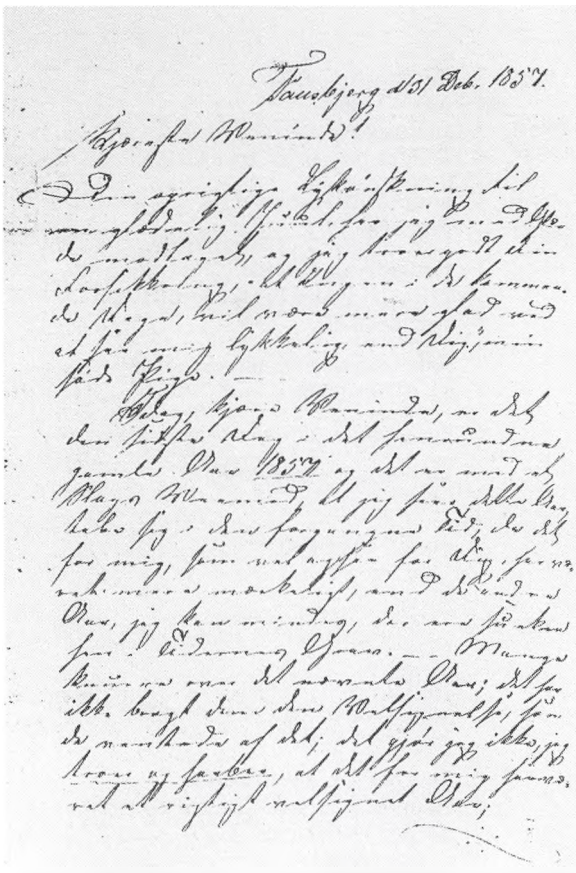 Tausbjerg d 31 Deb. 1857.
Kjæreste Veninde!
Din oprigtige Lykønskning til
min glædelig har jeg med Glæ-
de modtaget, og jeg troer godt din
Forsikkring, at Ingen i de kommen-
de Dage, vil være mere glad ved
at see mig lykkelig, end Dig, min
søde Pige. —
Idag, kjære Veninde, er det
den sidste Dag i det henrundne
gamle Aar 1857 og det er med et
Slags Veemod, at jeg seer dette Aar
tabe sig i den forgangne Tid, da det
for mig, som vel ogsaa for Dig, har væ-
ret mere mærkeligt, end de andre
Aar, jeg kan mindes, der ere sunken
hen i Tidernes Grav. — Mange
knurre over det Aar; det har
ikke bragt dem den Velsignelse, som
de ventede af det; det gjør jeg ikke, jeg
troer og haaber, at det for mig har væ-
ret et rigtigt velsignet Aar;